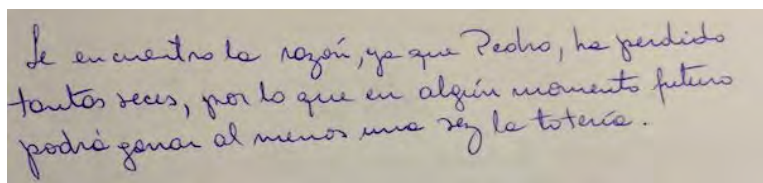 Le encuentro la razón, ya que Pedro, ha perdido
tantas veces, por lo que en algún momento futuro
podrá ganar al menos una vez la lotería.